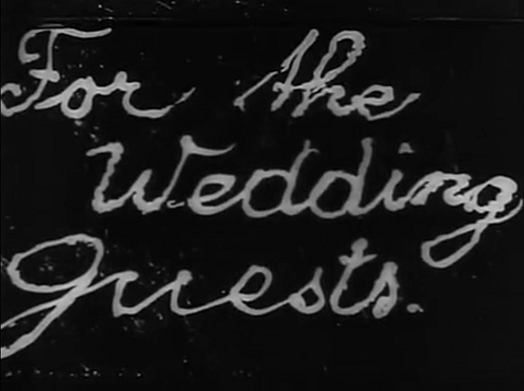 For the
Wedding
Guests.